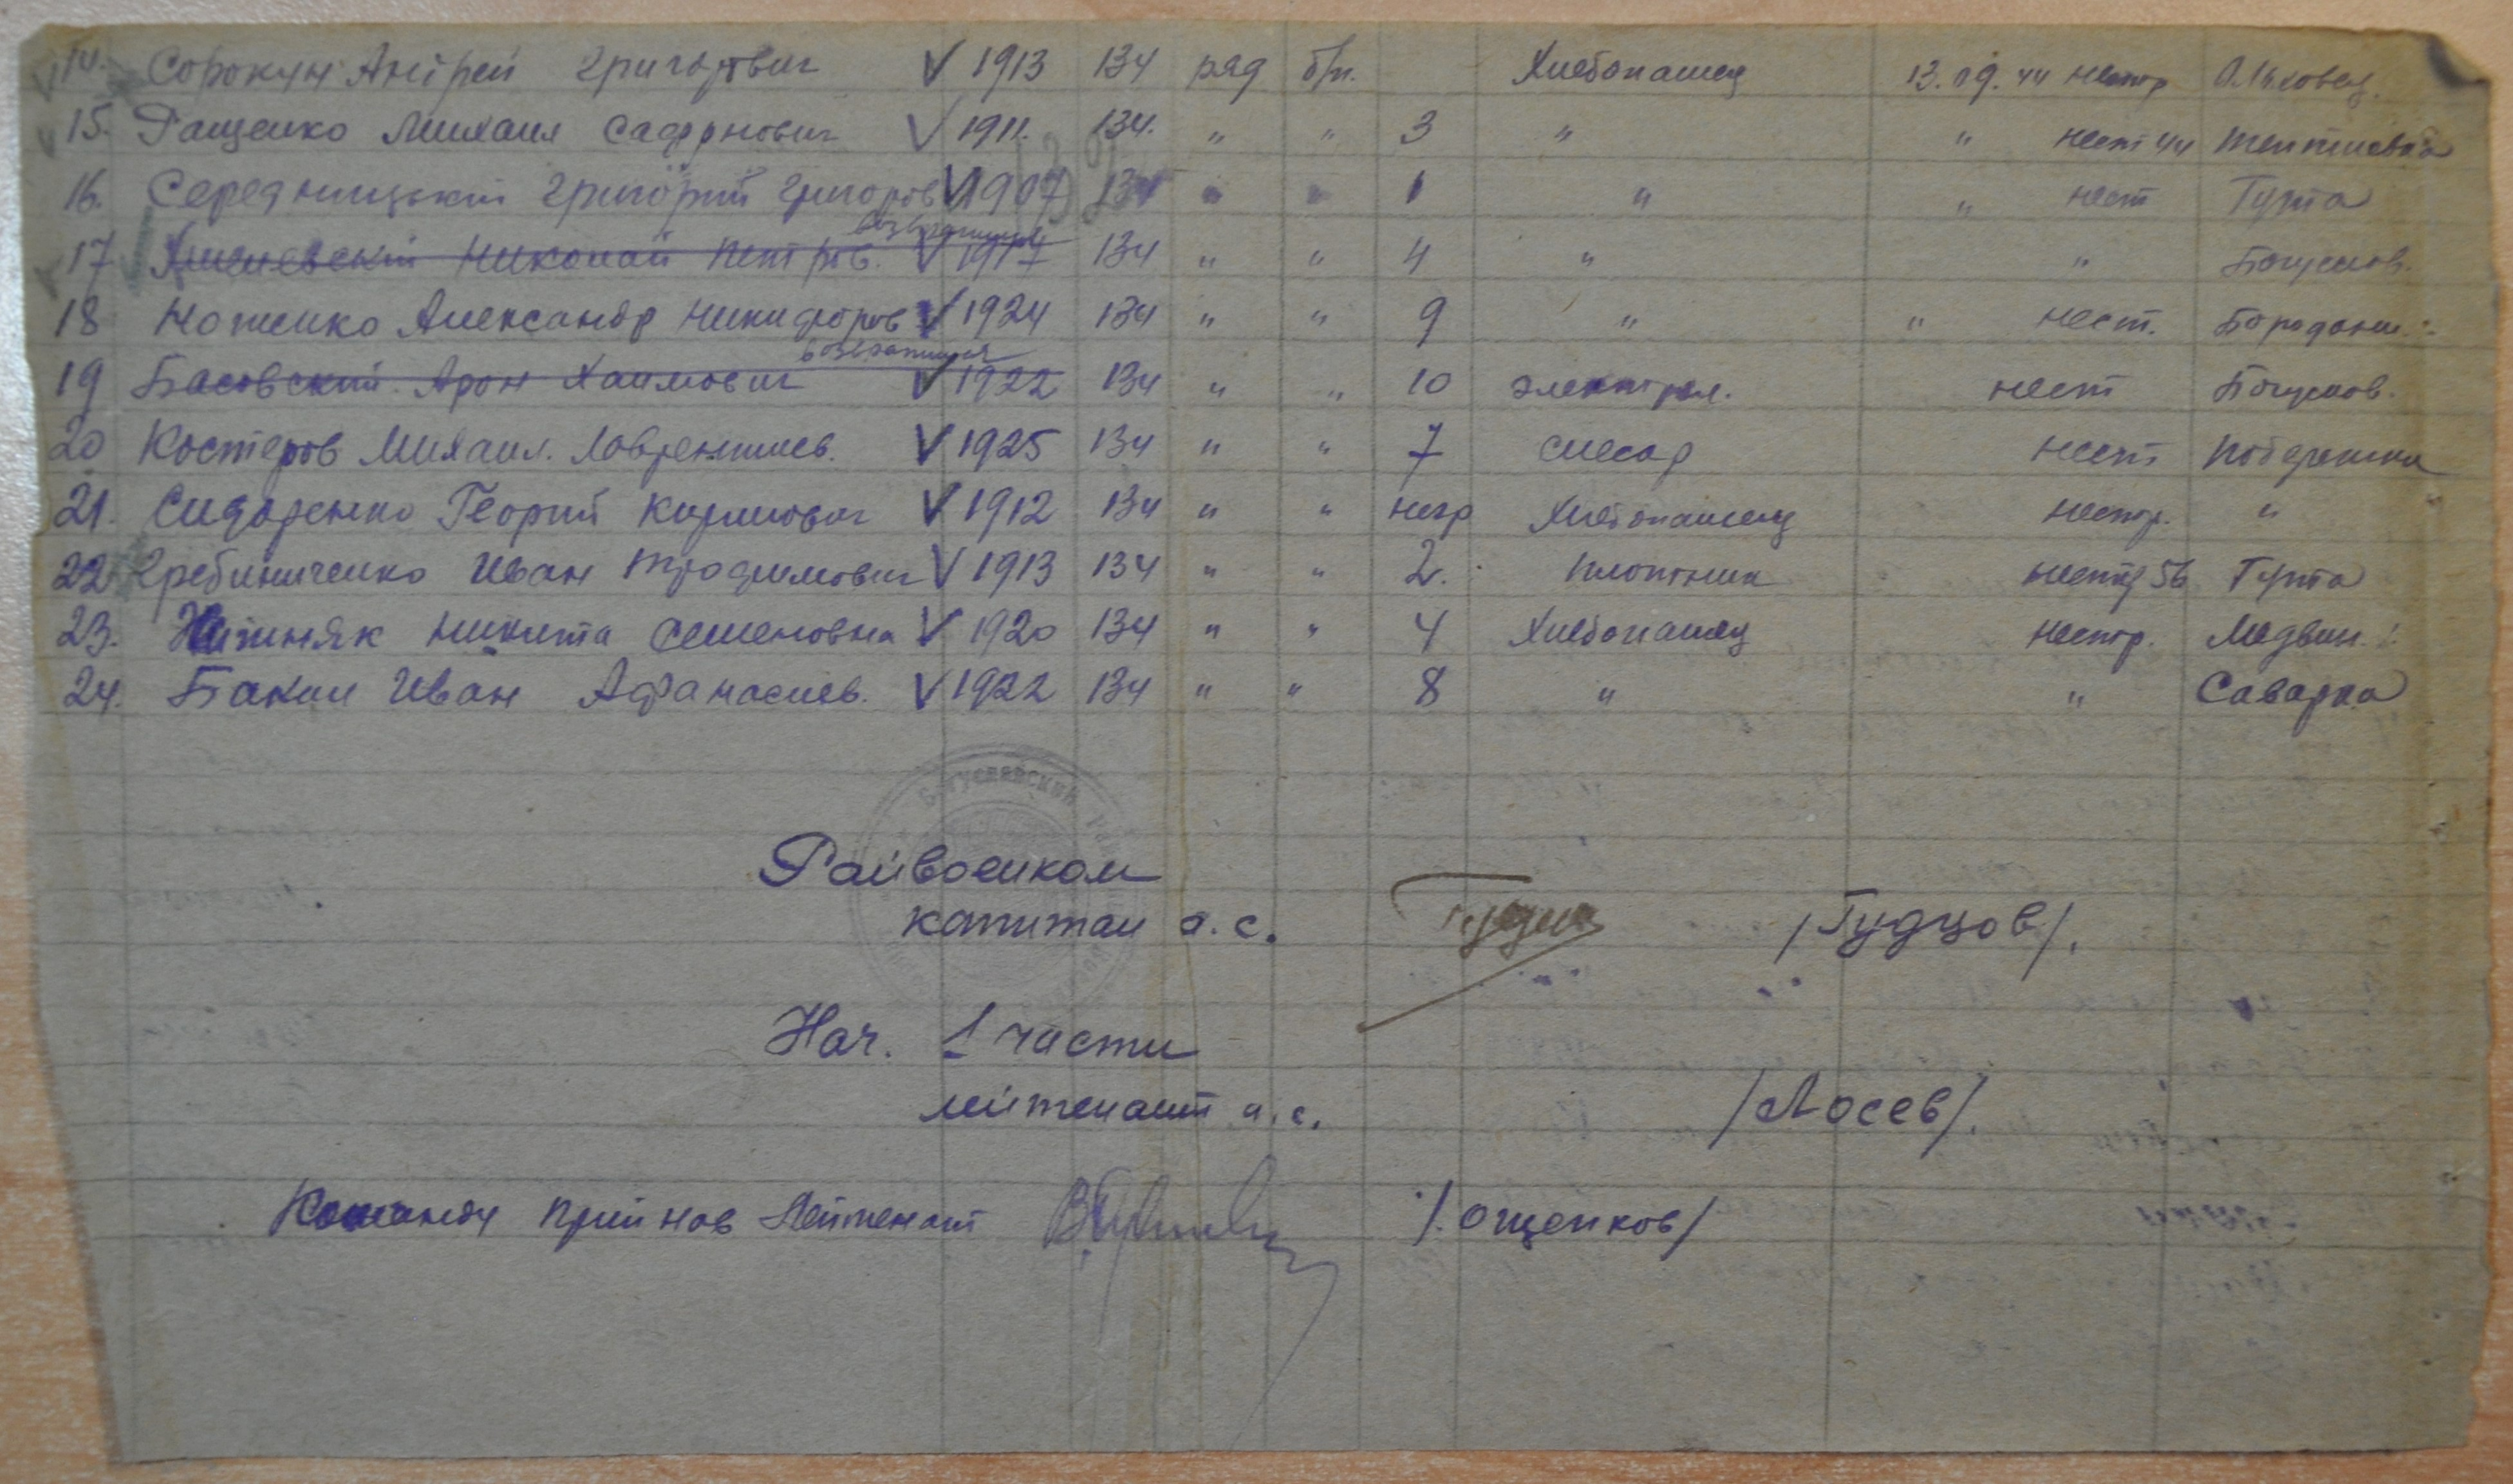 14. Сорокун Андрей Григорович V 1913 134 ряд б/п. Хлебопашец 13.09.44 нестр Ольховец.
15. Ращенко Михаил Сафонович V 1911. 134. " " 3 " " нест 44 Тептиевка
16. Середницький Григорий Григоров V 1907 134 " " 1 " " нест Гута
возвратился
17 Николай Петров. V 1917 134 " " 4 " " Богуслов.
18 Ноженко Александр Никифоров V 1924 134 " " 9 " " нест. Бородани.
возвратился
19 Басовский Арон Хаимович V 1922 134 " " 10 электрик. нест Богуслов.
20 Костеров Михаил. Лаврентиев. V 1925 134 " " 7 слесар нест
21. Сидоренко Георгий Кирилович V 1912 134 " " негр Хлебопашец нестр. "
22 Гребиниченко Иван Трофимович V 1913 134 " " 2. плотник 56 Гута
23. Никита Семеновна V 1920 134 " " 4 Хлебопашец нестр. Медвин.
24. Бакал Иван Афанасиев. V 1922 134 " " 8 " " Саварка
Богуславский
Райвоенком
капитан а.с. /Гудзов/.
Нач. 1 части
лейтенант а.с. /Лосев/.
Команду прийнов Лейтенант /Ощепков/